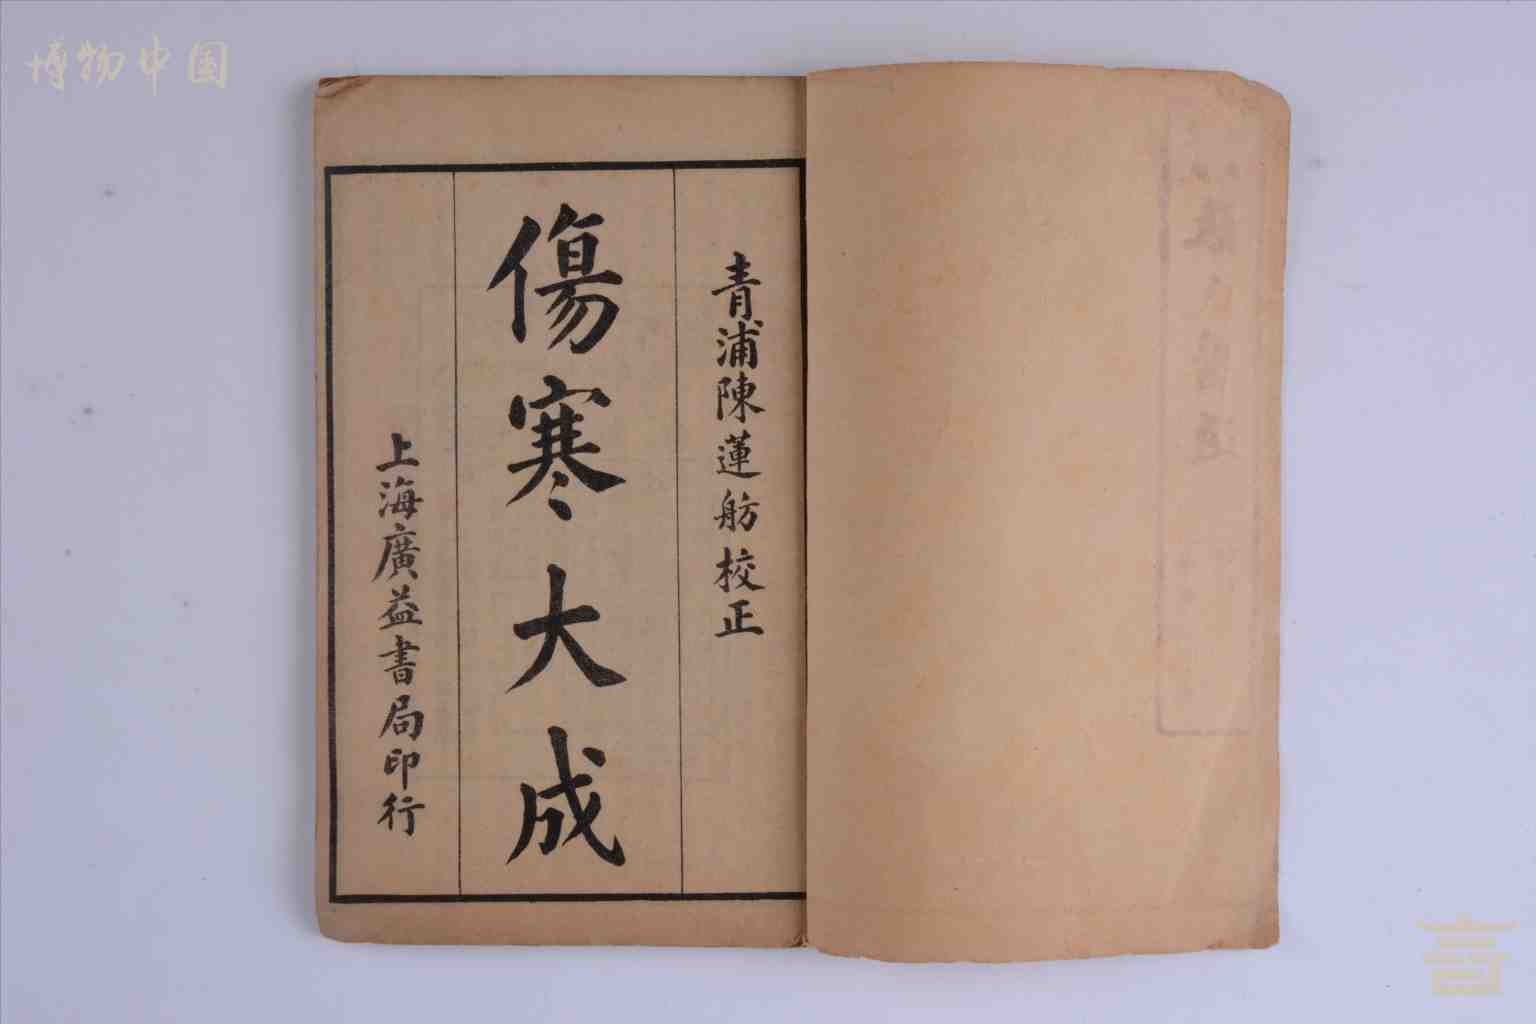 博物中国
青浦陳蓮舫校正
傷寒大成
上海廣益書局印行